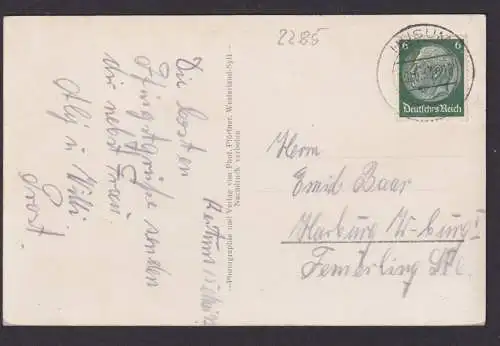 2285
HUSUM
6 6
Deutsches Reich
Die besten
Pfingstgrüße senden
Dir nebst Frau
Willi
Prost.
Photographie und Verlag von Phot. Pförtner, Westerland-Sylt
Nachdruck verboten
Herrn
Emil Baar
Harburg W-burg